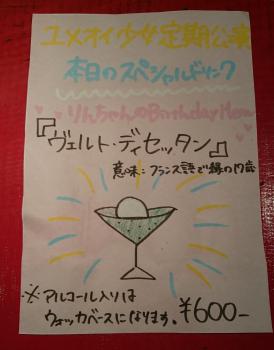 ユメオイ少女定期公演
本日のスペシャルドリンク
りんちゃんのBirthday Menu
『ヴェルト・ディセッタン』
意味:フランス語で緑の17歳
※アルコール入りは
ウォッカベースになります。¥600-